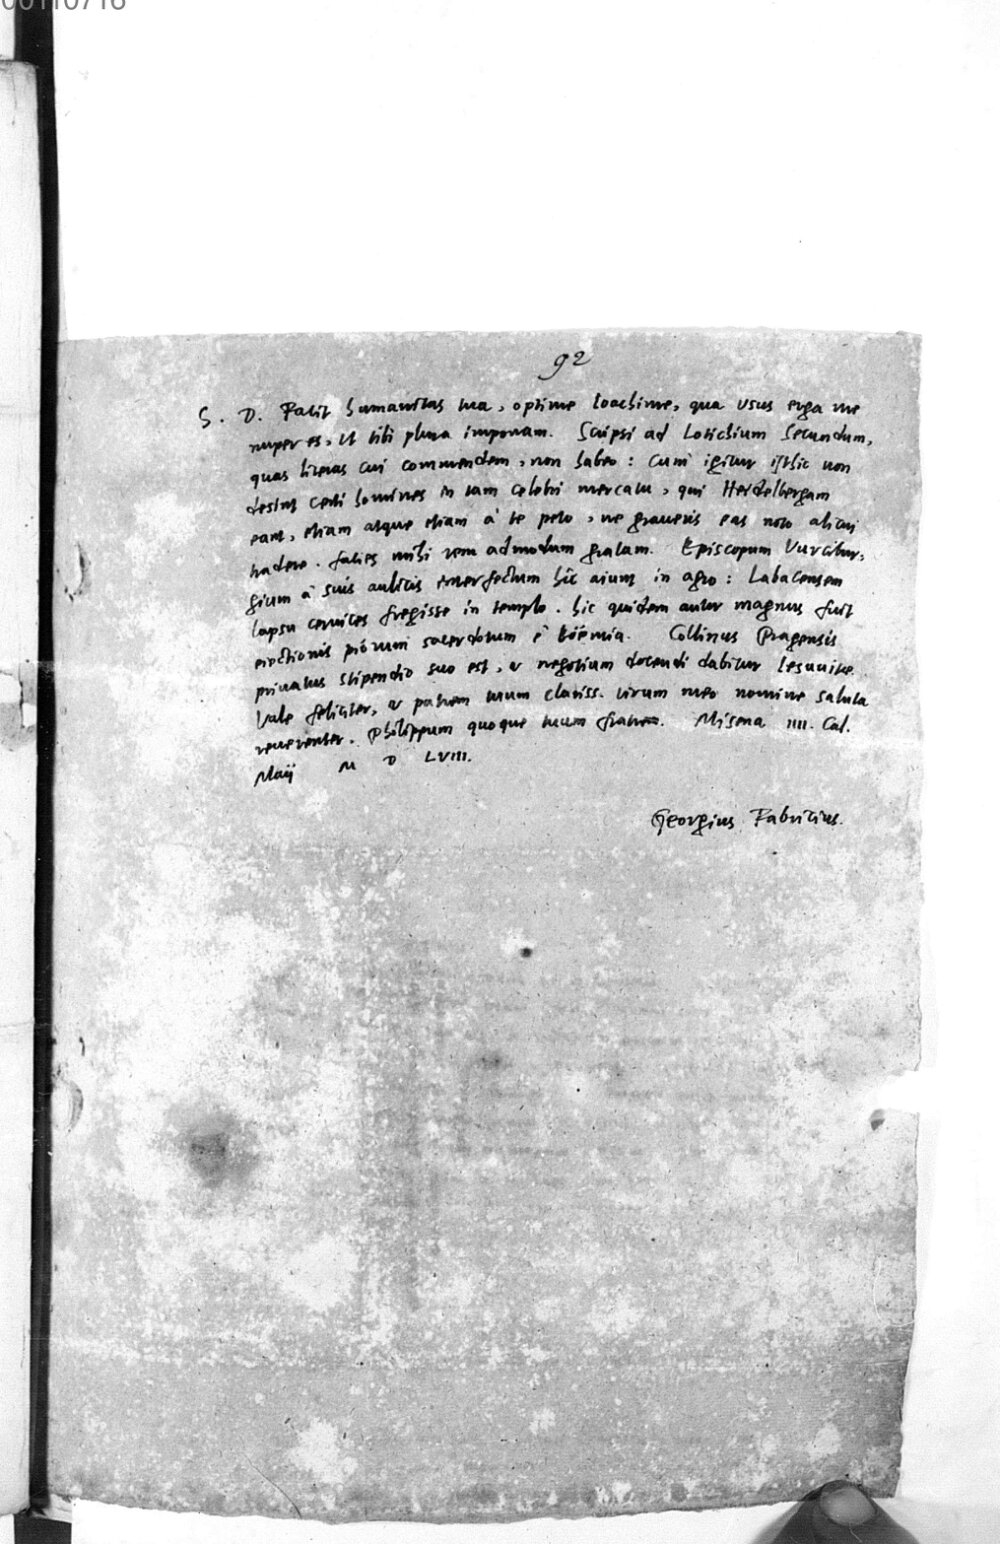 00110716
92
S. D. Facit humanitas tua, optime Ioachime, qua usus erga me
nuper es, ut tibi plura imponam. Scripsi ad Lotichium Secundum,
quas literas cui commendem, non habeo: Cum igitur isthic non
desint certi homines in tam celebri mercatu, qui Heidelbergam
eant, etiam atque etiam à te peto, ne graveris eas noto alicui
tradere. facies mihi rem admodum gratam. Episcopum Vurcibur,
gium à suis aulicis interfectum hîc aiunt in agro: Labacensem
lapsu cervices fregisse in templo. hic quidem autor magnus fuit
eiectionis piorum sacerdotum è Boëmia. Collinus Pragensis
privatus stipendio suo est, & negotium docendi dabitur Iesuuitę.
Vale feliciter, & patrem tuum clariss. virum meo nomine saluta
reverenter. Philippum quoque tuum fratrem. Misena IIII. Cal.
Maij M D LVIII.
Georgius Fabricius.